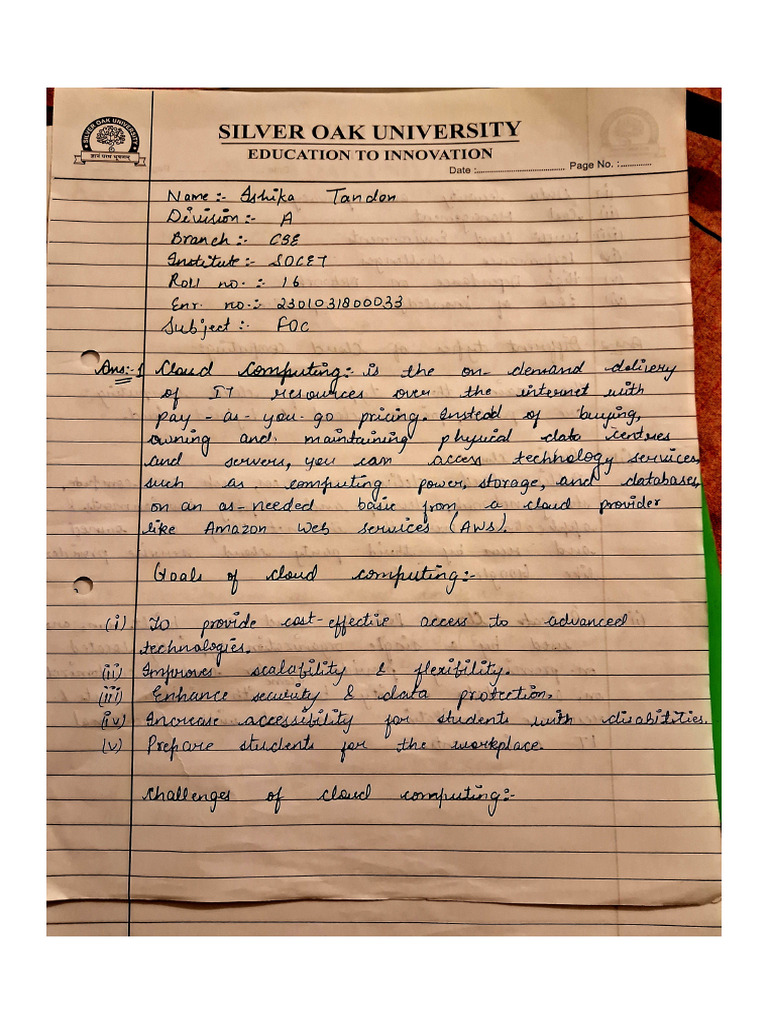 SILVER OAK UNIVERSITY
EDUCATION TO INNOVATION
Date :.............................. Page No. :.............
SILVER OAK UNIVERSITY
Name :- Ishika Tandon
Division :- A
Branch :- CSE
Institute :- SOCET
Roll no. :- 16
Enr. no. :- 2301031800033
Subject :- FOC
Ans:-1 Cloud Computing:- is the on-demand delivery
of IT resources over the internet with
pay-as-you-go pricing. Instead of buying,
owning and maintaining physical data centres
and servers, you can access technology services,
such as computing power, storage, and databases,
on an as-needed basic from a cloud provider
like Amazon Web Services (AWS).
Goals of cloud computing:-
(i) To provide cost-effective access to advanced
technologies.
(ii) Improves scalability & flexibility.
(iii) Enhance security & data protection.
(iv) Increase accessibility for students with disabilities.
(v) Prepare students for the workplace.
Challenges of cloud computing:-